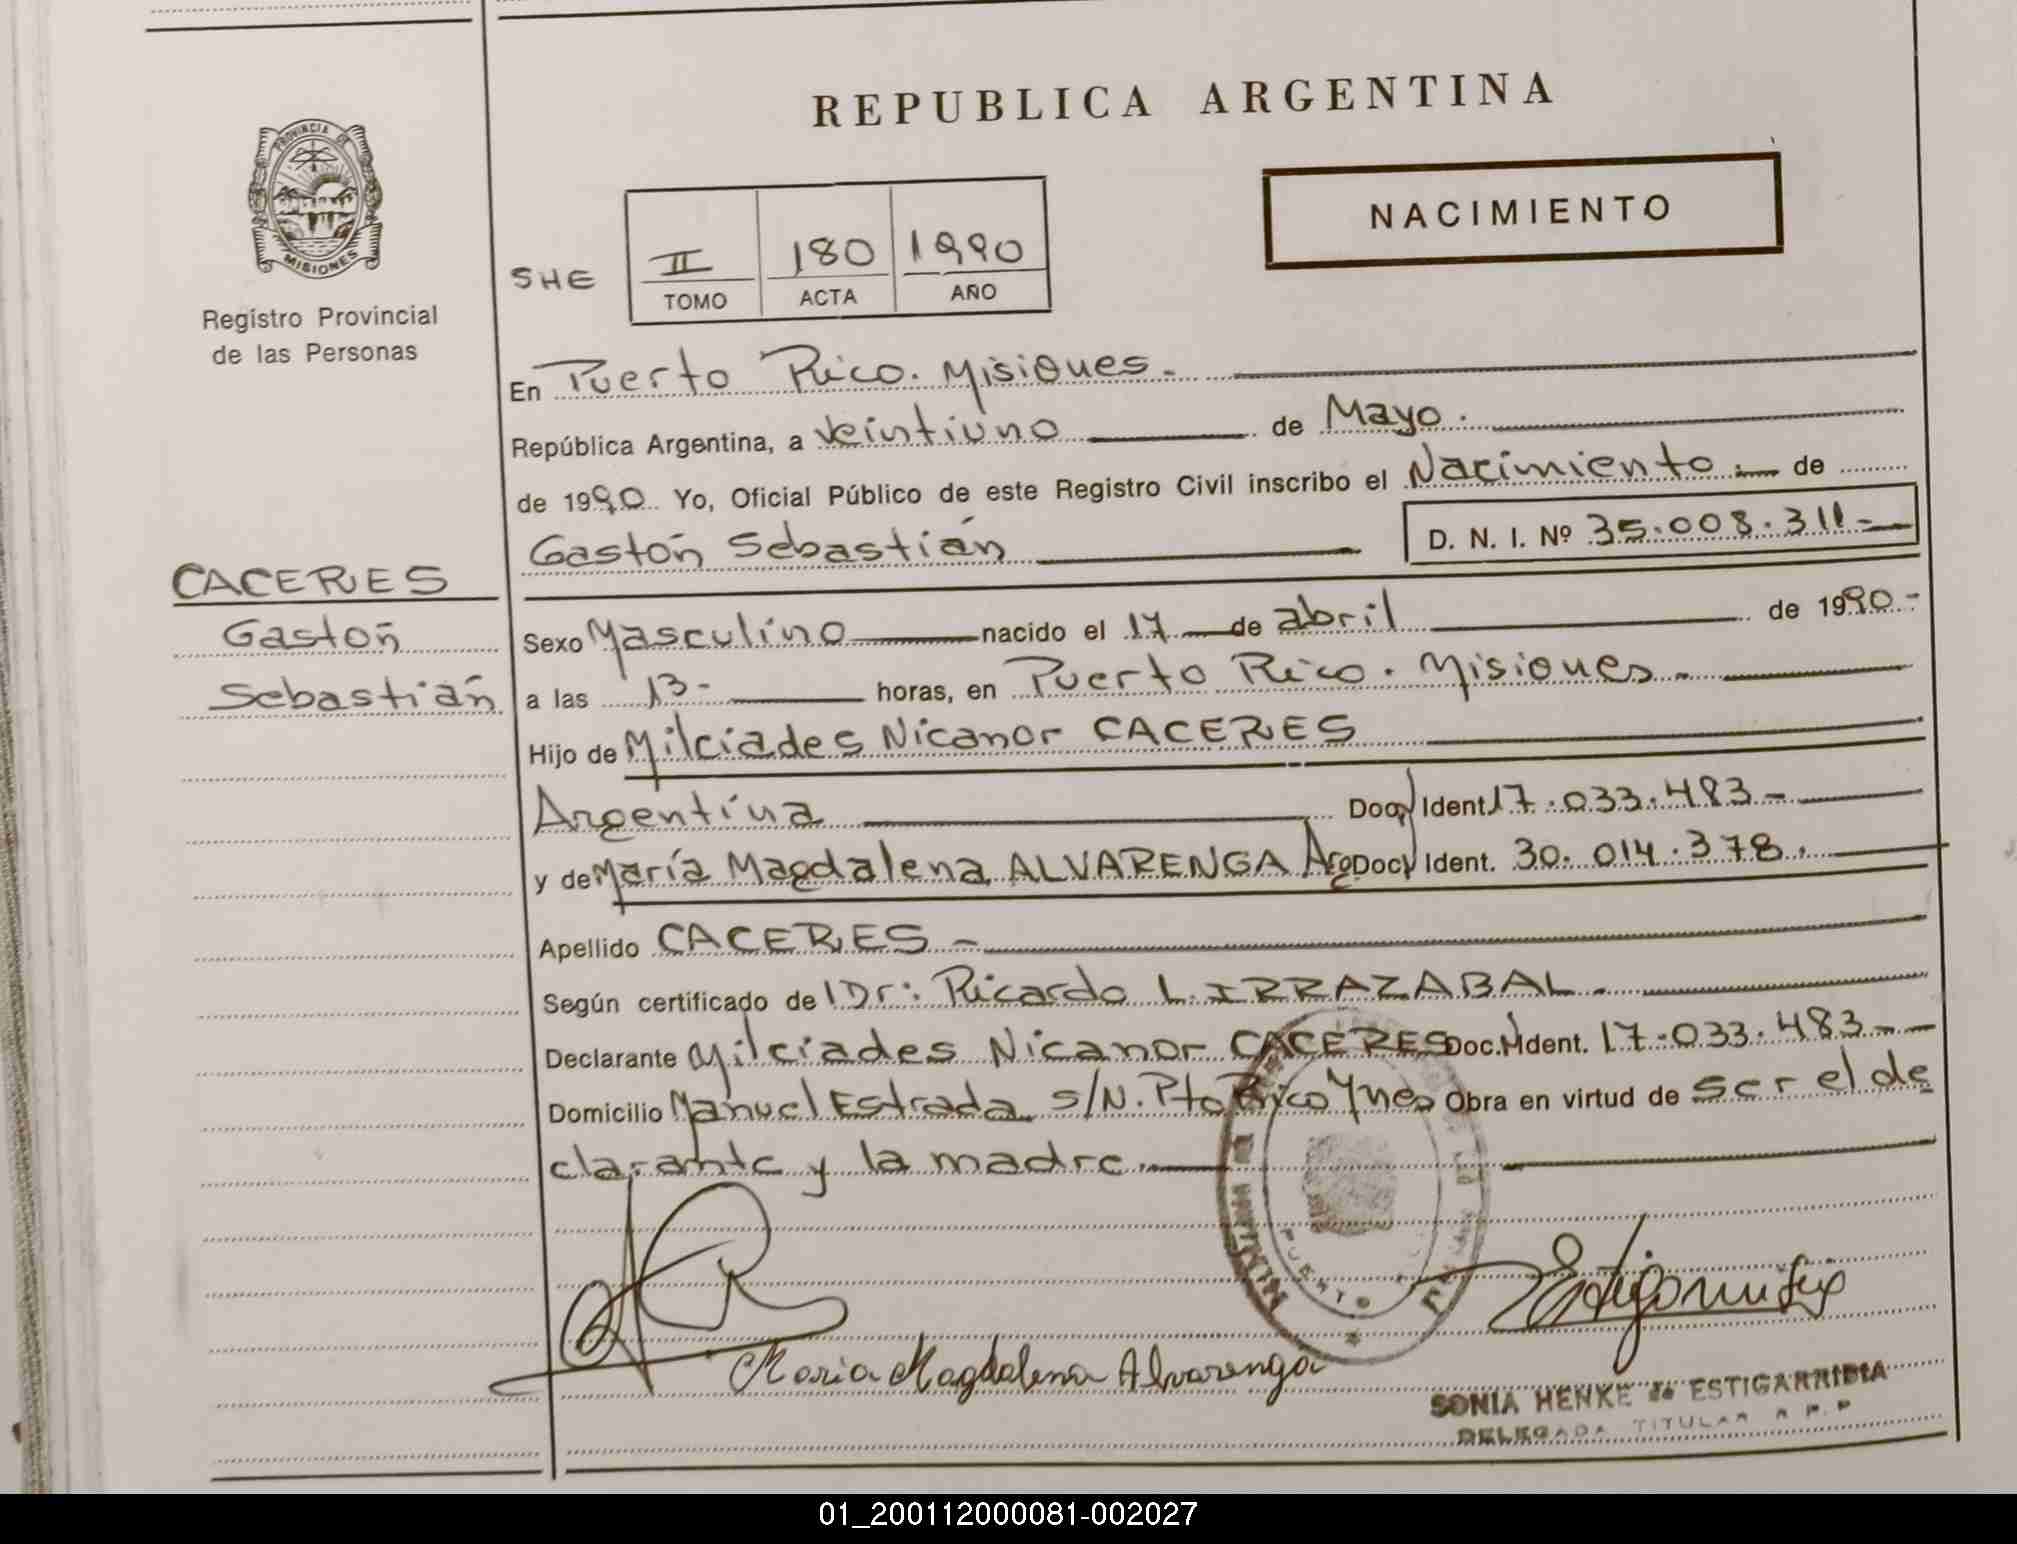 REPUBLICA ARGENTINA
NACIMIENTO
PROVINCIA DE
MISIONES
Registro Provincial
de las Personas
SHE
II 180 1990
TOMO ACTA AÑO
En Puerto Rico. Misiones.
República Argentina, a veintiuno de Mayo.
de 1990. Yo, Oficial Público de este Registro Civil inscribo el Nacimiento. de
Gastón Sebastián
D. N. I. Nº 35.008.311-
CACERES
Gastón
Sebastián
Sexo Masculino nacido el 17 de abril de 1990-
a las 13- horas, en Puerto Rico. Misiones.
Hijo de Milciades Nicanor CACERES
Argentina Doc. Ident. 17.033.483-
y de María Magdalena ALVARENGA Arg. Doc. Ident. 30.014.378.
Apellido CACERES-
Según certificado de Dr: Ricardo L. IRRAZABAL.
Declarante Milciades Nicanor CACERES Doc. Ident. 17.033.483-
Domicilio Manuel Estrada s/N. Pto Rico Mnes Obra en virtud de ser el de
clarante y la madre.
Maria Magdalena Alvarenga
SONIA HENKE de ESTIGARRIBIA
DELEGADA TITULAR R.P.P
01_200112000081-002027